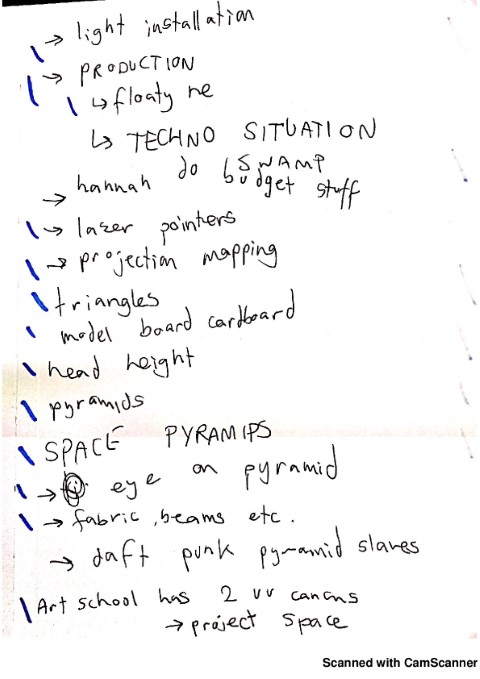 → light installation
→ PRODUCTION
↳ floaty ne
↳ TECHNO SITUATION
SWAMP
→ hannah do budget stuff
→ lazer pointers
→ projection mapping
triangles
model board cardboard
head height
pyramids
SPACE PYRAMIPS
→ eye on pyramid
→ fabric, beams etc.
→ daft punk pyramid slaves
Art school has 2 uv canons
→ project space
Scanned with CamScanner